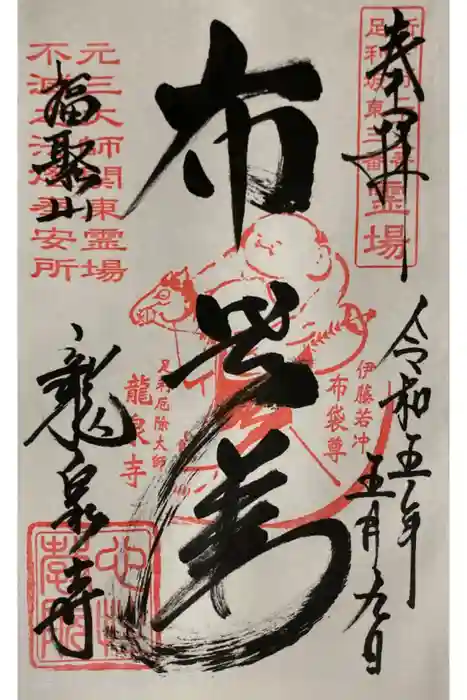 奉拝
足利坂東
霊場
令和五年
五月九日
伊藤若冲
布袋尊
布袋尊
足利厄除大師
龍泉寺
元三大師関東霊場
不滅之法燈奉安所
福聚山
龍泉寺